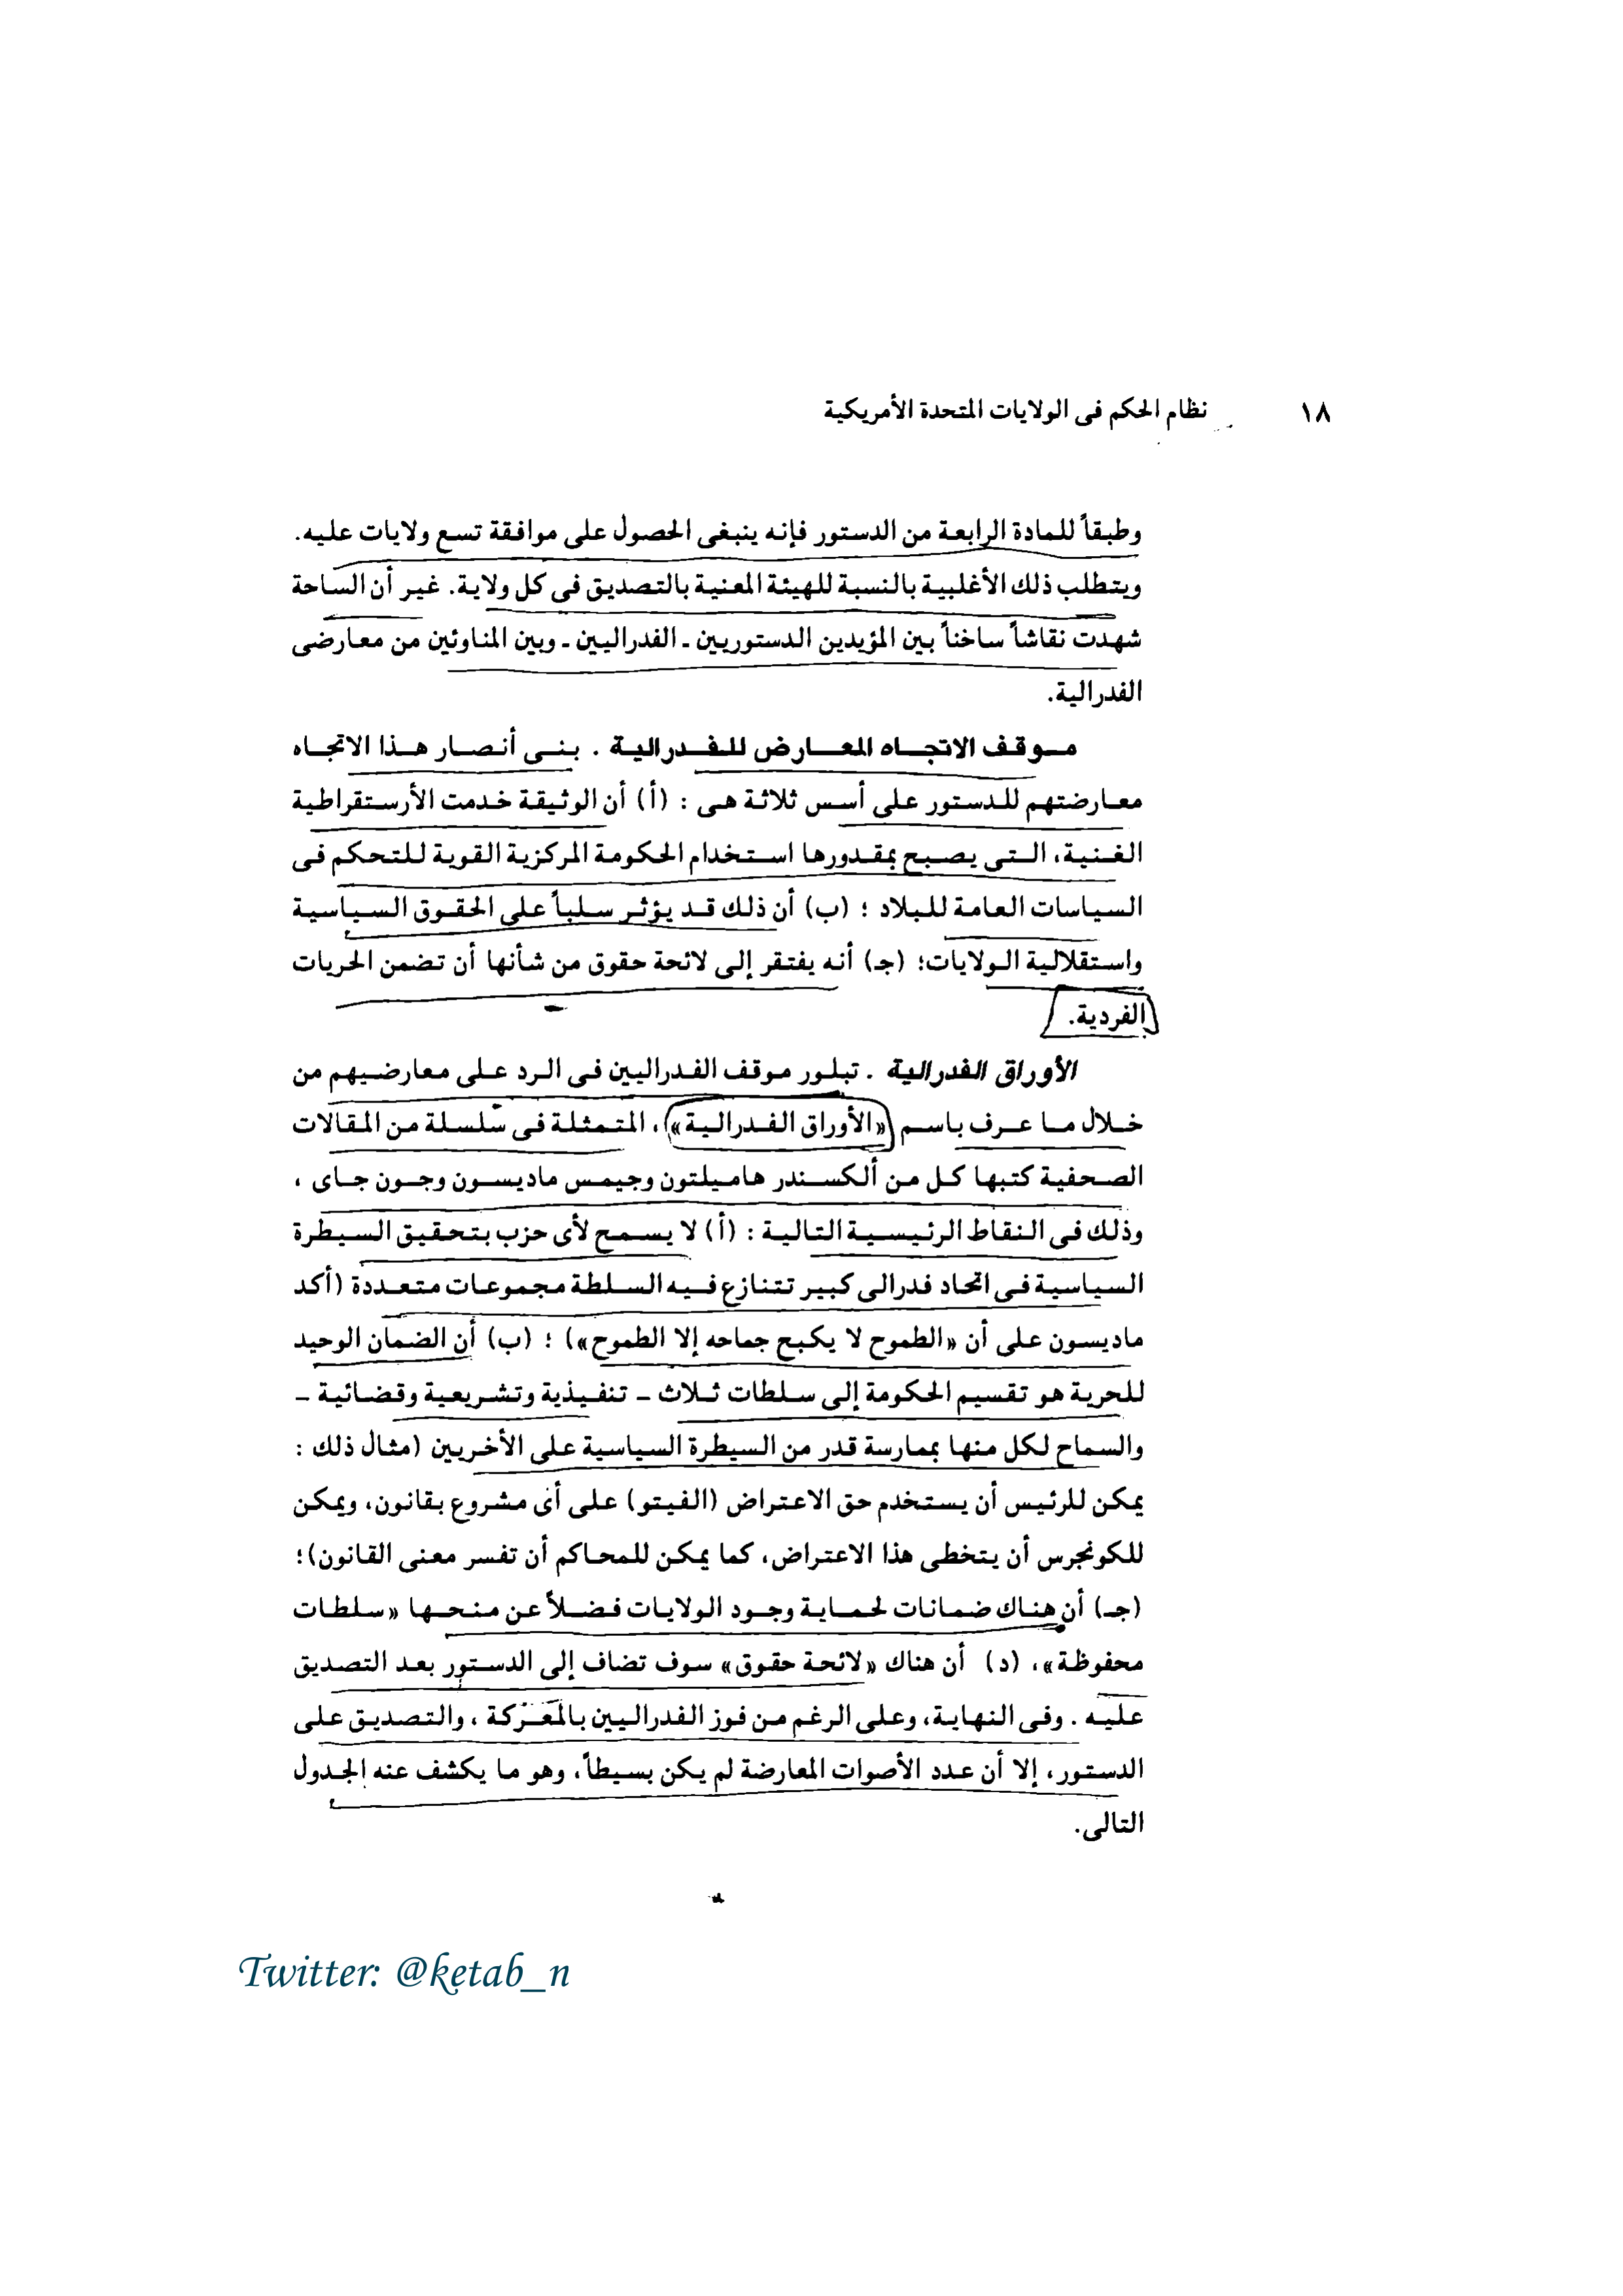 ١٨ نظام الحكم فى الولايات المتحدة الأمريكية
وطبقاً للمادة الرابعة من الدستور فإنه ينبغى الحصول على موافقة تسع ولايات عليه.
ويتطلب ذلك الأغلبية بالنسبة للهيئة المعنية بالتصديق فى كل ولاية. غير أن الساحة
شهدت نقاشاً ساخناً بين المؤيدين الدستوريين ـ الفدراليين ـ وبين المناوئين من معارضى
الفدرالية.
موقف الاتجاه المعارض للفدرالية . بنى أنصار هذا الاتجاه
معارضتهم للدستور على أسس ثلاثة هى : (أ) أن الوثيقة خدمت الأرستقراطية
الغنية، التى يصبح بمقدورها استخدام الحكومة المركزية القوية للتحكم فى
السياسات العامة للبلاد ؛ (ب) أن ذلك قد يؤثر سلباً على الحقوق السياسية
واستقلالية الولايات؛ (جـ) أنه يفتقر إلى لائحة حقوق من شأنها أن تضمن الحريات
الفردية.
الأوراق الفدرالية . تبلور موقف الفدراليين فى الرد على معارضيهم من
خلال ما عرف باسم «الأوراق الفدرالية»، المتمثلة فى سلسلة من المقالات
الصحفية كتبها كل من ألكسندر هاميلتون وجيمس ماديسون وجون جاى ،
وذلك فى النقاط الرئيسية التالية : (أ) لا يسمح لأى حزب بتحقيق السيطرة
السياسية فى اتحاد فدرالى كبير تتنازع فيه السلطة مجموعات متعددة (أكد
ماديسون على أن «الطموح لا يكبح جماحه إلا الطموح») ؛ (ب) أن الضمان الوحيد
للحرية هو تقسيم الحكومة إلى سلطات ثلاث – تنفيذية وتشريعية وقضائية –
والسماح لكل منها بممارسة قدر من السيطرة السياسية على الأخريين (مثال ذلك :
يمكن للرئيس أن يستخدم حق الاعتراض (الفيتو) على أى مشروع بقانون، ويمكن
للكونجرس أن يتخطى هذا الاعتراض، كما يمكن للمحاكم أن تفسر معنى القانون)؛
(جـ) أن هناك ضمانات لحماية وجود الولايات فضلاً عن منحها «سلطات
محفوظة»، (د) أن هناك «لائحة حقوق» سوف تضاف إلى الدستور بعد التصديق
عليه . وفى النهاية، وعلى الرغم من فوز الفدراليين بالمعركة ، والتصديق على
الدستور، إلا أن عدد الأصوات المعارضة لم يكن بسيطاً، وهو ما يكشف عنه الجدول
التالى.
Twitter: @ketab_n